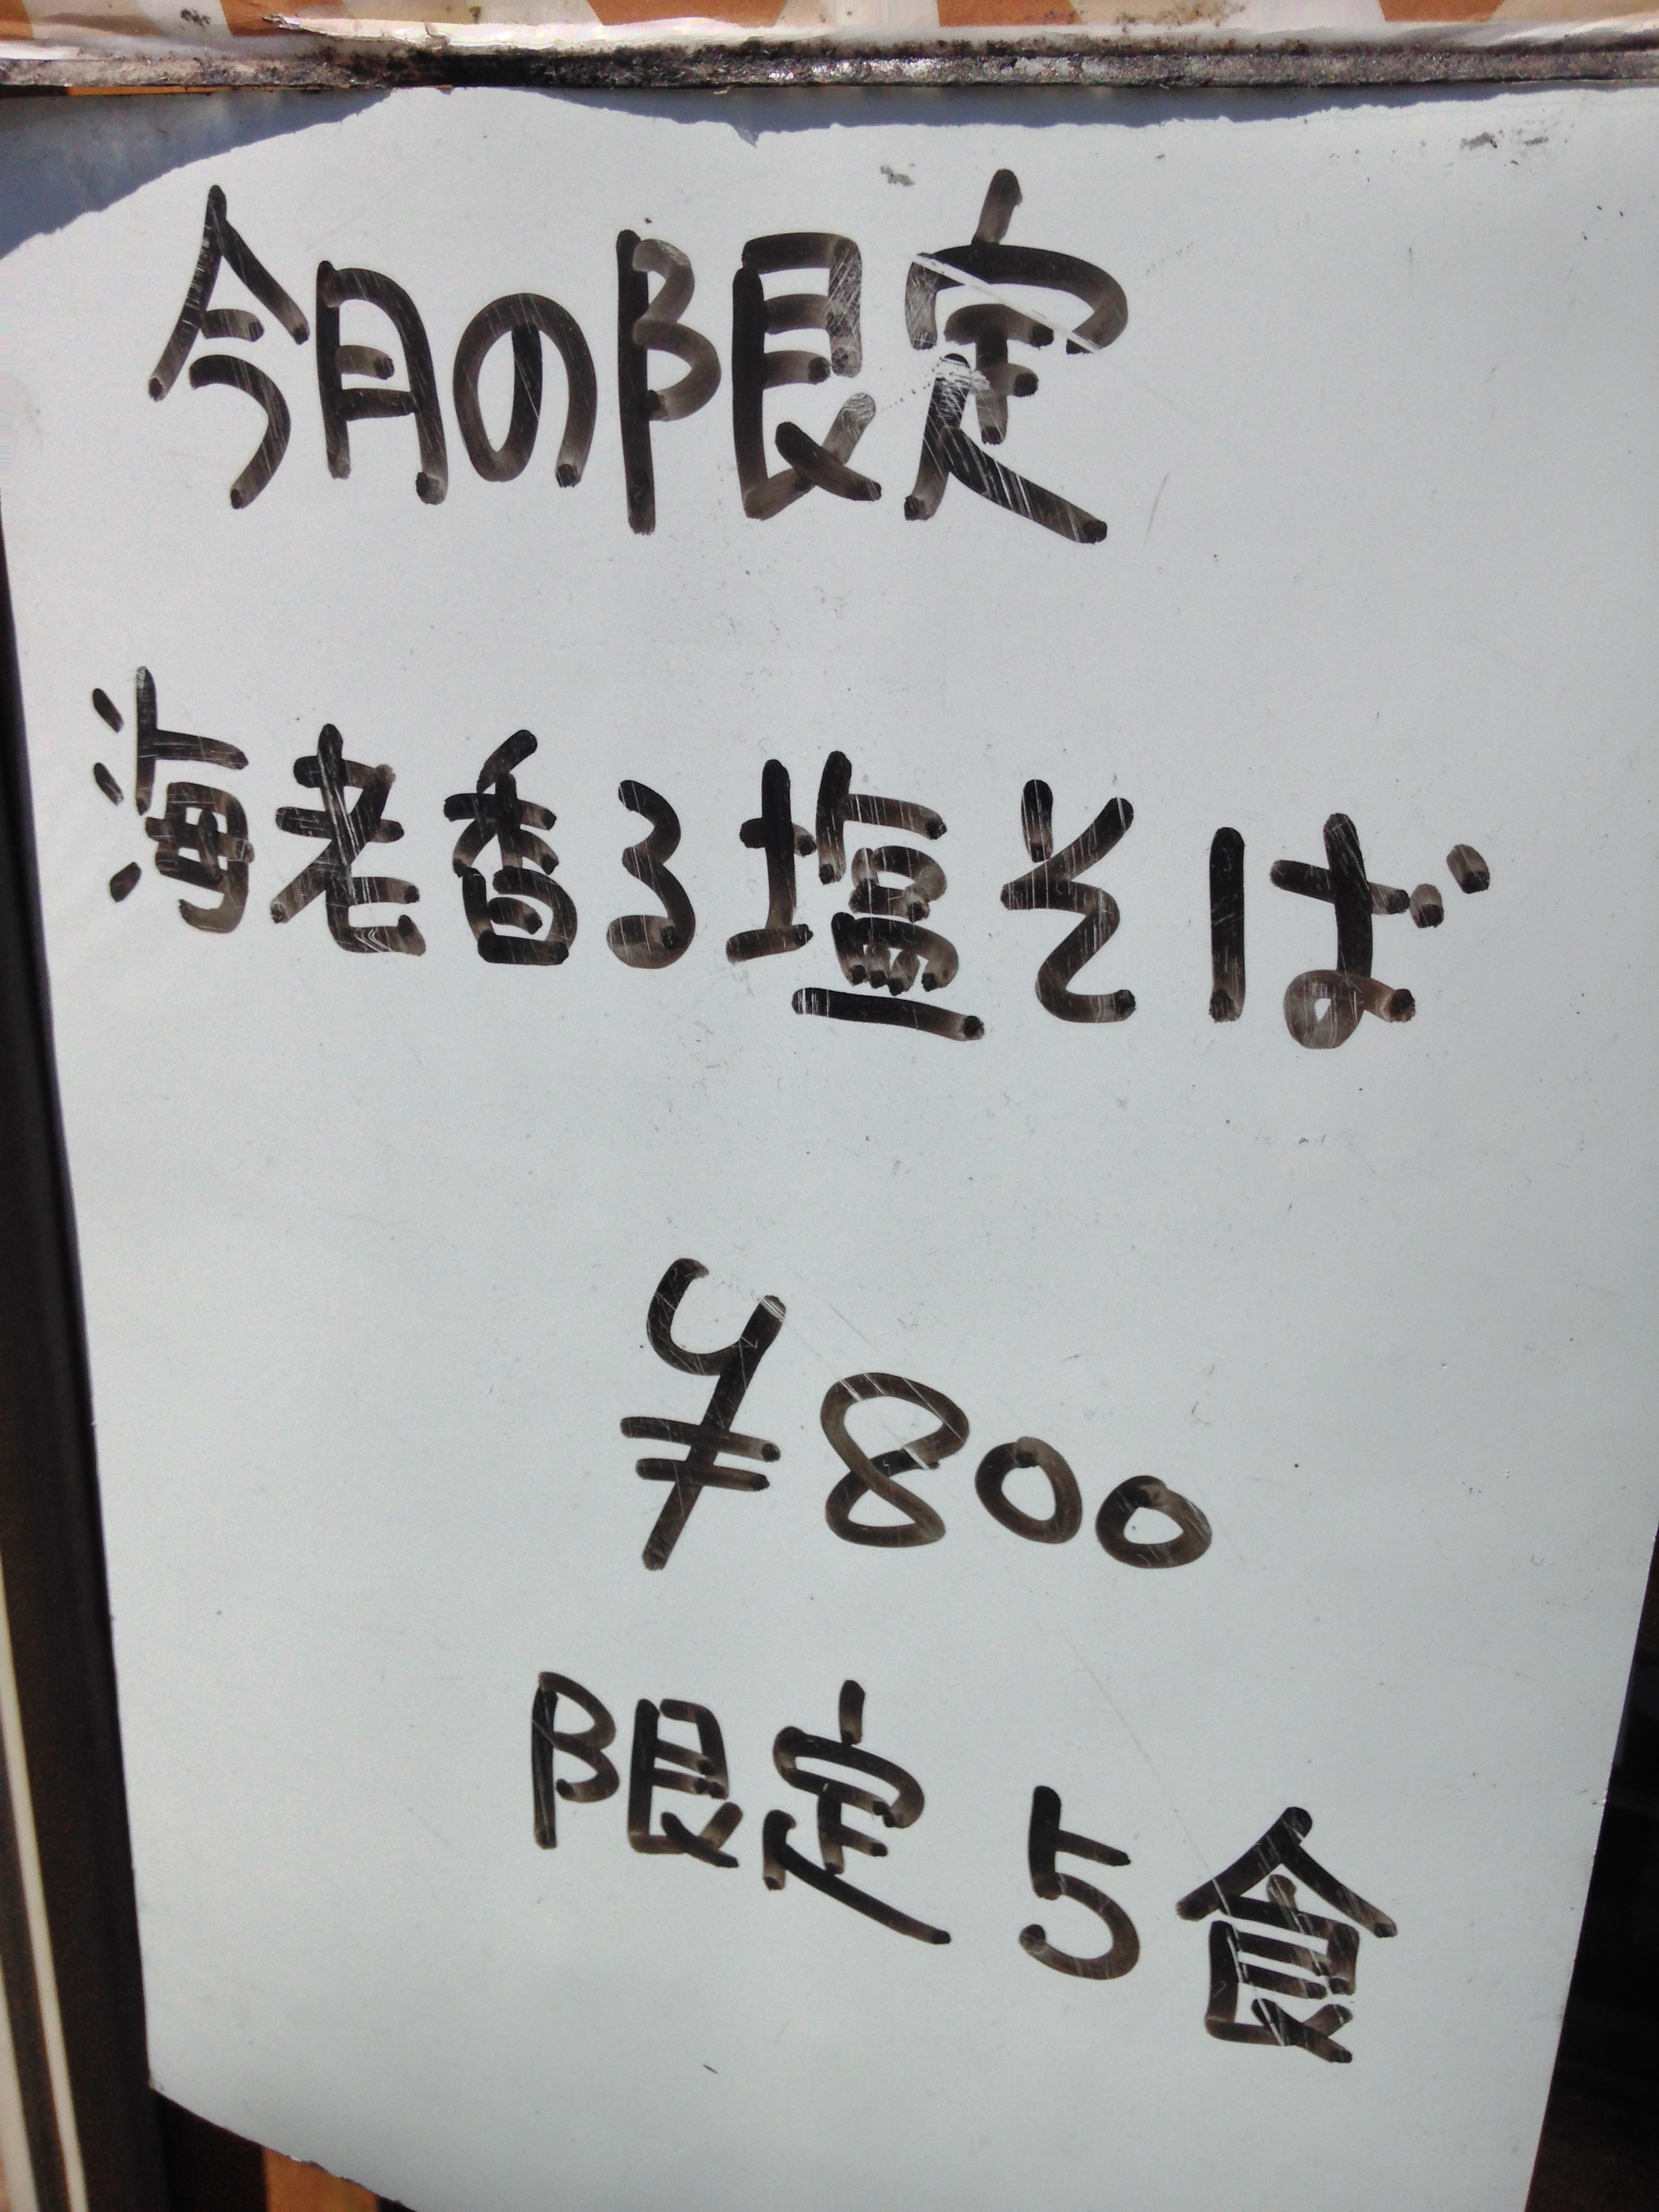 今月の限定
海老香る塩そば
¥800
限定5食